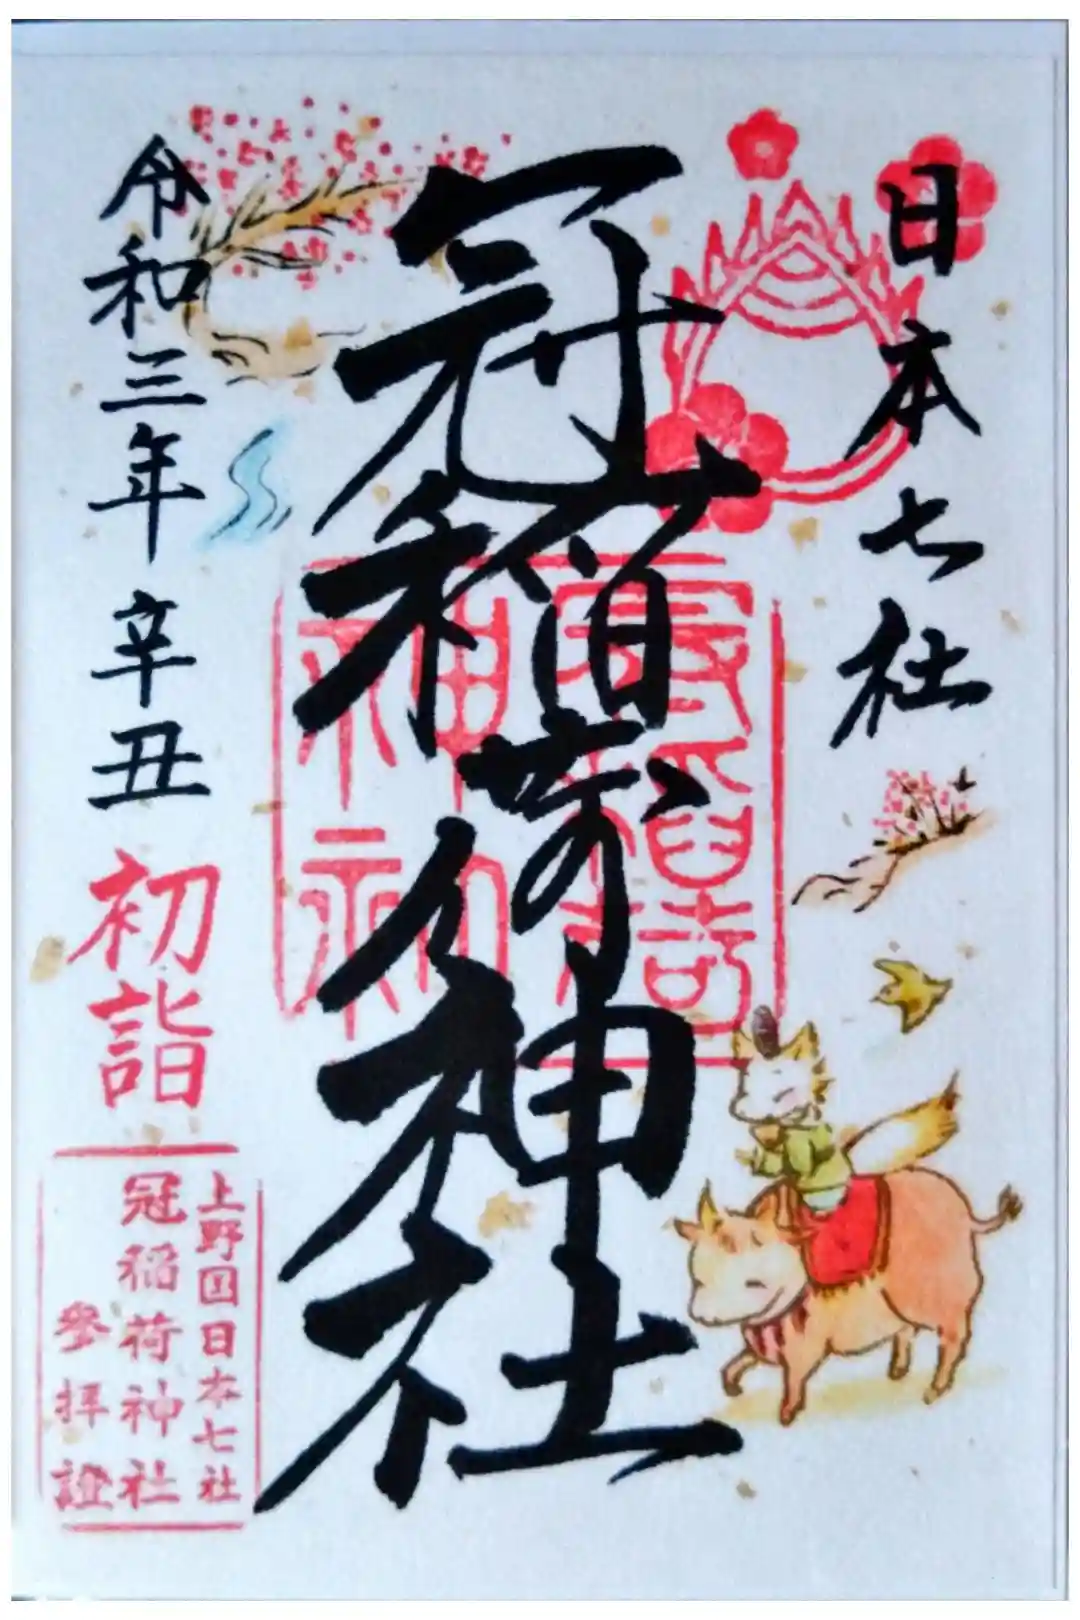 日本七社
冠稲荷神社
令和三年 辛丑
初詣
上野国日本七社
冠稲荷神社
參拝證